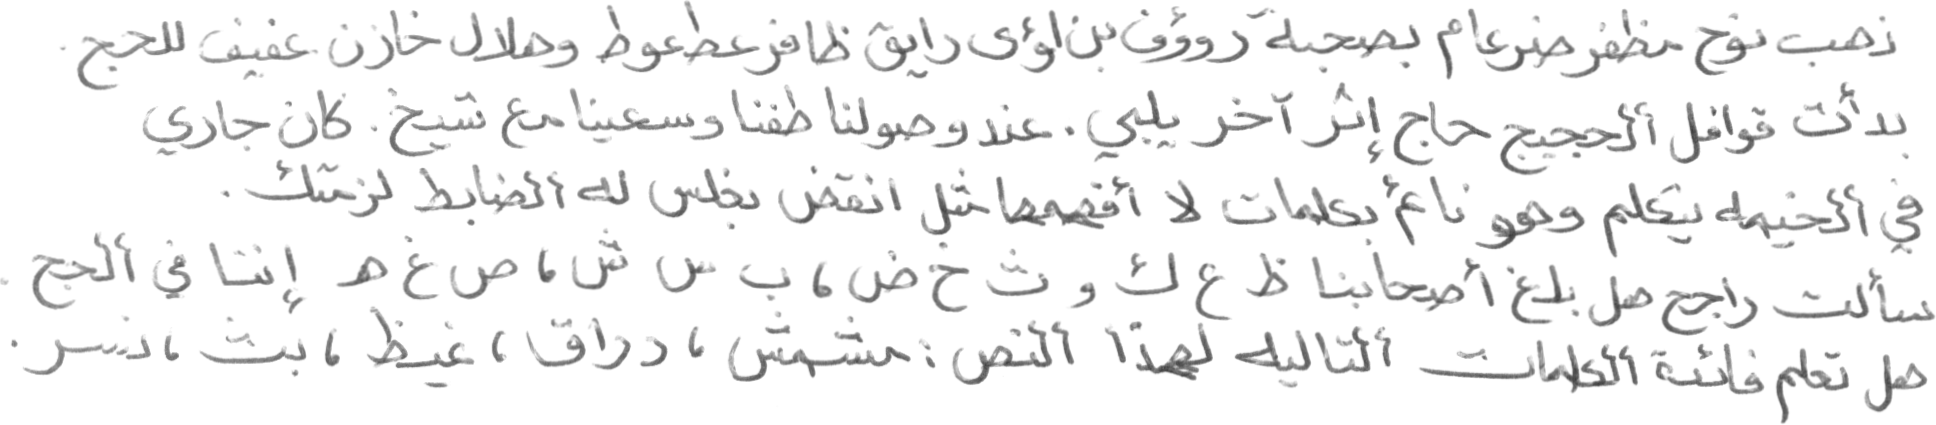 ذهب نوح مظفر ضرغام بصحبة رؤوف بن لؤى رايق ظافر عطعوط وهلال خازن عفيف للحج.
بدأت قوافل ألحجيج حاج إثر آخر يلبي. عند وصولنا طفنا وسعينا مع شيخ. كان جاري
في ألخيمه يتكلم وهو نائم بكلمات لا أفهمها مثل انقض بخلس له ألضابط لزمتك.
سألت راجح هل بلغ أصحابنا ظ ع ك و ث خ ض ، ب س ش ، ص غ هـ إننا في ألحج.
هل تعلم فائدة ألكلمات ألتاليه لهذا ألنص : مشمش ، دراق ، غيظ ، بث ، نسر.